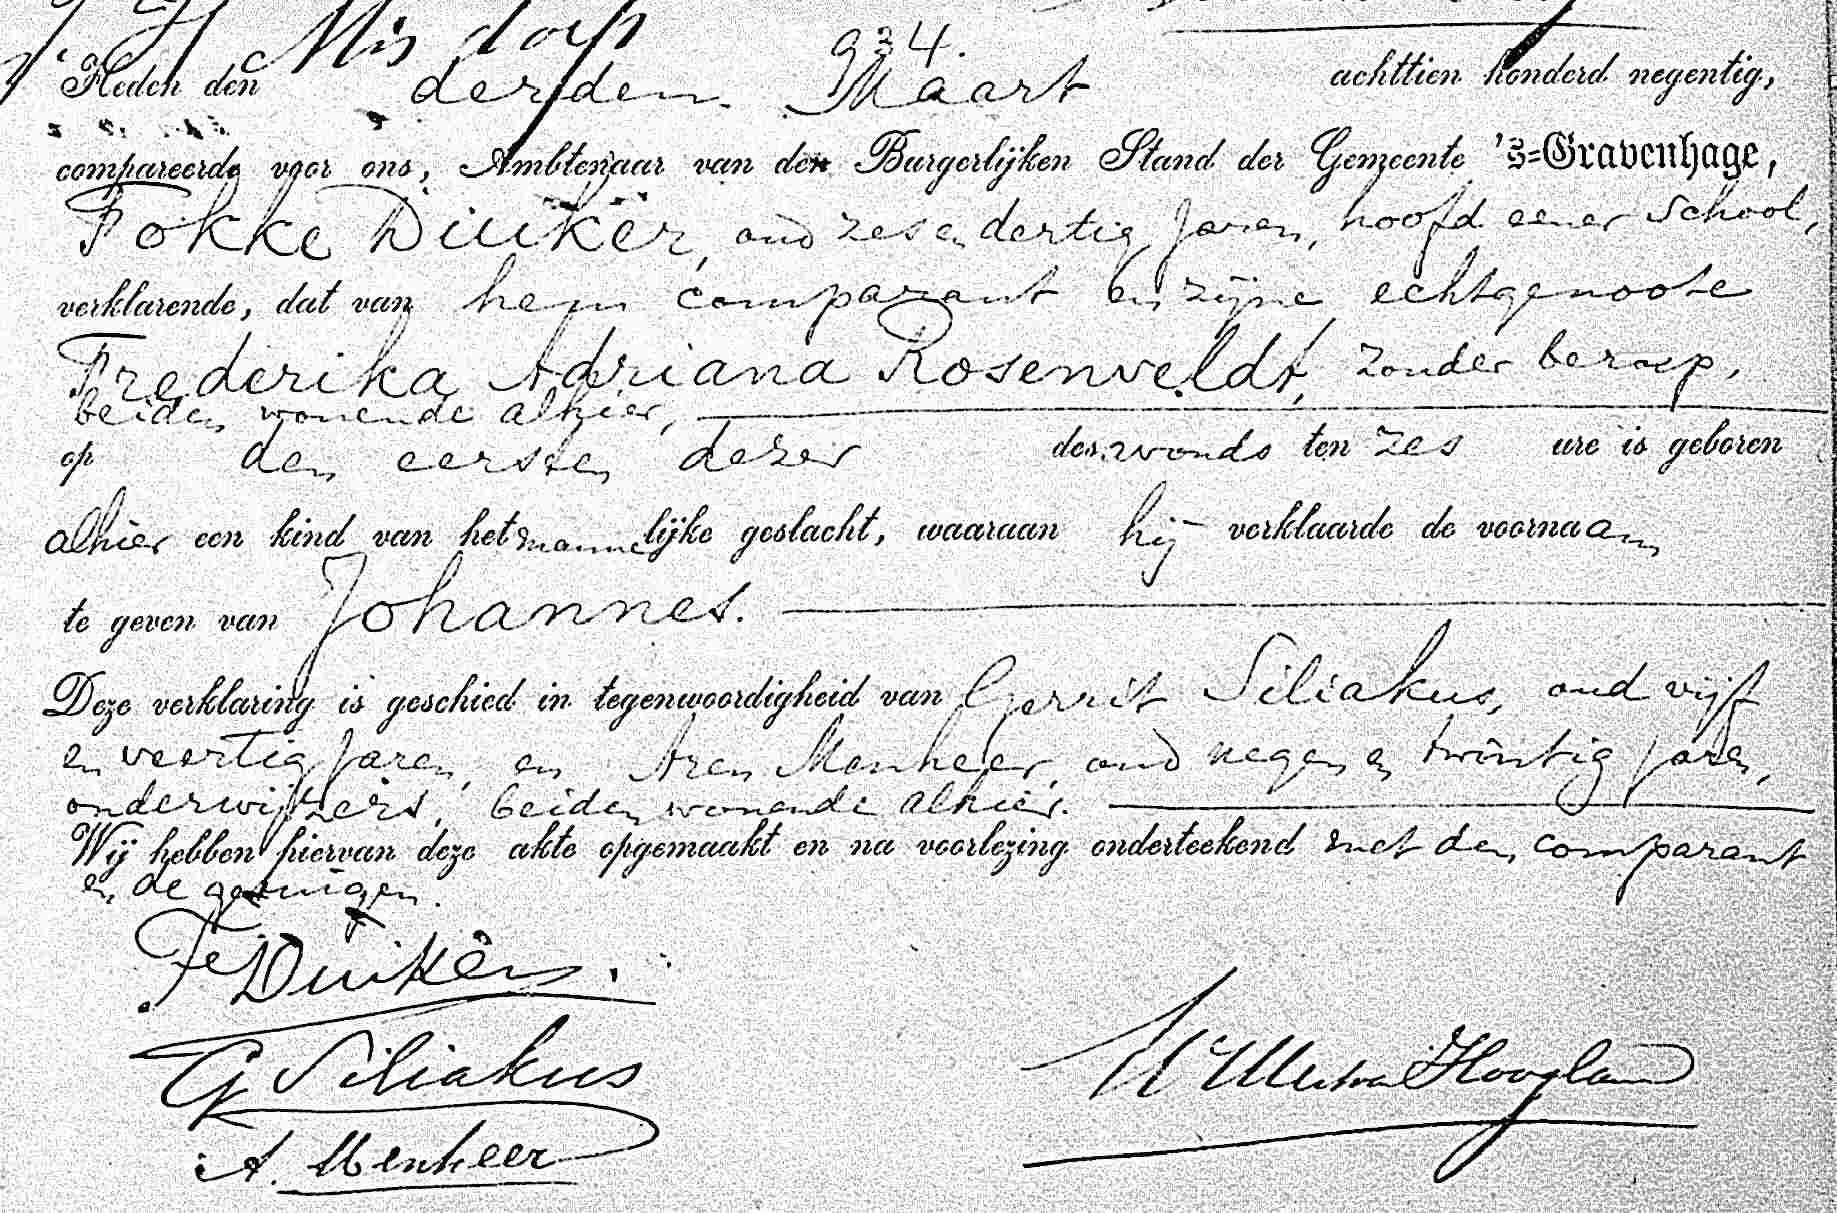 Misdorp
934.
Heden den derden Maart achttien honderd negentig,
compareerde voor ons, Ambtenaar van den Burgerlijken Stand der Gemeente 's-Gravenhage,
Fokke Duiker, oud zes en dertig jaren, hoofd eener school,
verklarende, dat van hem comparant en zijne echtgenoote
Frederika Adriana Rosenveldt, zonder beroep,
beiden wonende alhier,
op den eersten dezer des avonds ten zes ure is geboren
alhier een kind van het mannelijke geslacht, waaraan hij verklaarde de voornaam
te geven van Johannes.
Deze verklaring is geschied in tegenwoordigheid van Gerrit Siliakus, oud vijf
en veertig jaren, en Aren Menheer, oud negen en twintig jaren,
onderwijzers, beiden wonende alhier.
Wij hebben hiervan deze akte opgemaakt en na voorlezing onderteekend met den comparant
en de getuigen.
F Duiker.
G Siliakus
A. Menheer
Hoogland